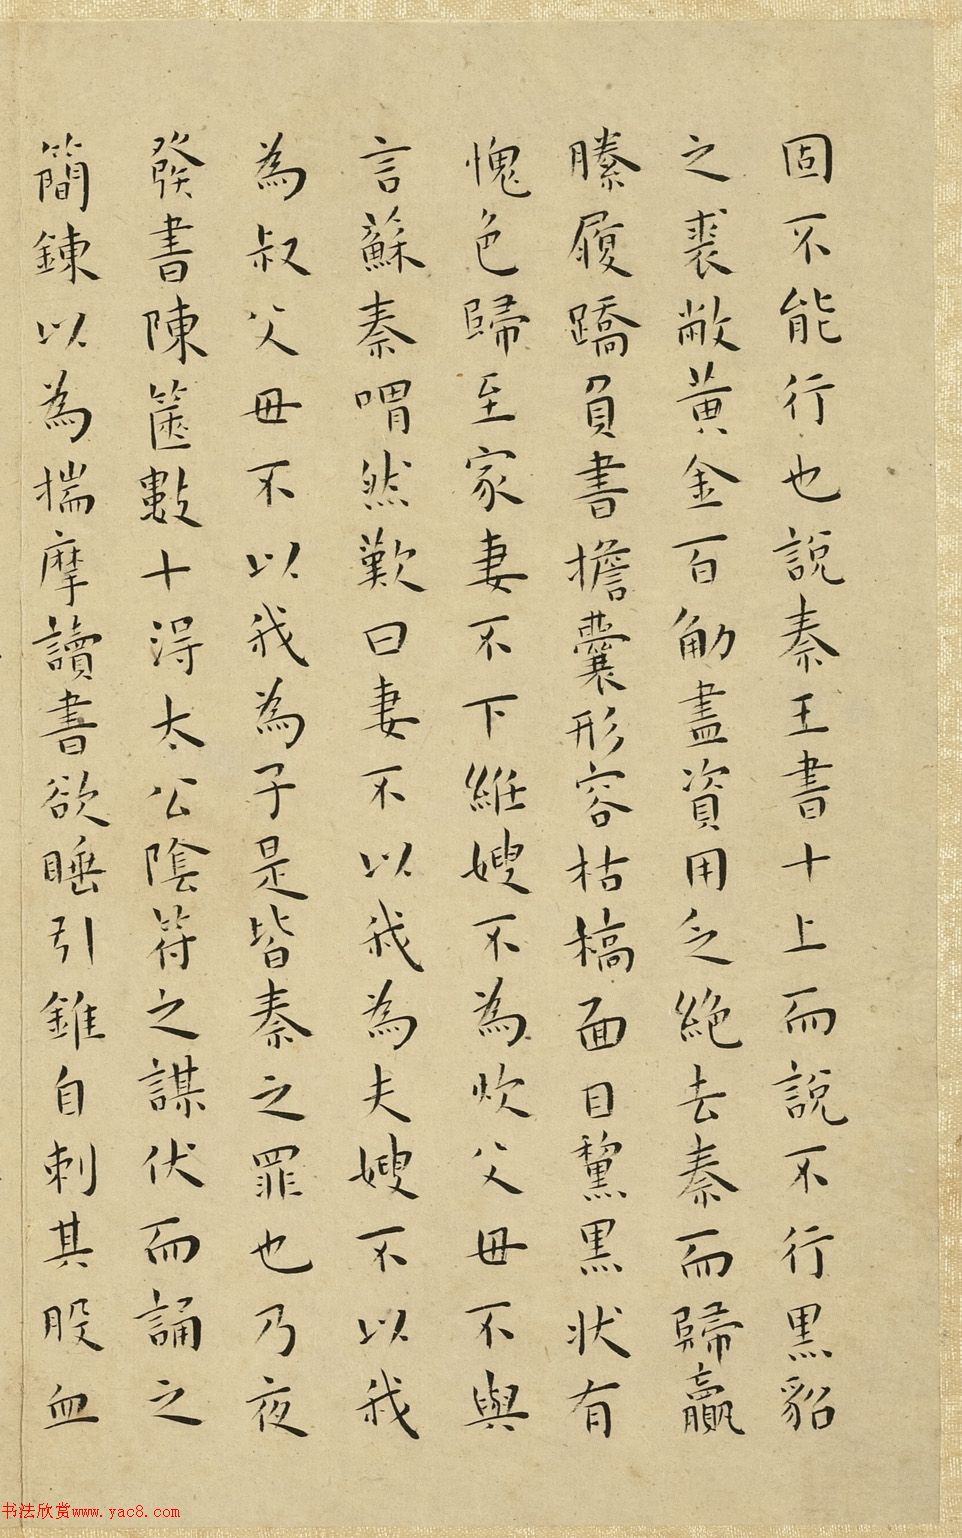 固不能行也說秦王書十上而說不行黑貂
之裘敝黃金百觔盡資用乏絶去秦而歸羸
縢履蹻負書擔囊形容枯槁面目黧黒狀有
愧色歸至家妻不下維嫂不為炊父毋不與
言蘇秦喟然歎曰妻不以我為夫嫂不以我
為叔父毋不以我為子是皆秦之罪也乃夜
發書陳篋數十淂太公陰符之謀伏而誦之
簡鍊以為揣摩讀書欲睡引錐自刺其股血
书法欣赏www.yac8.com